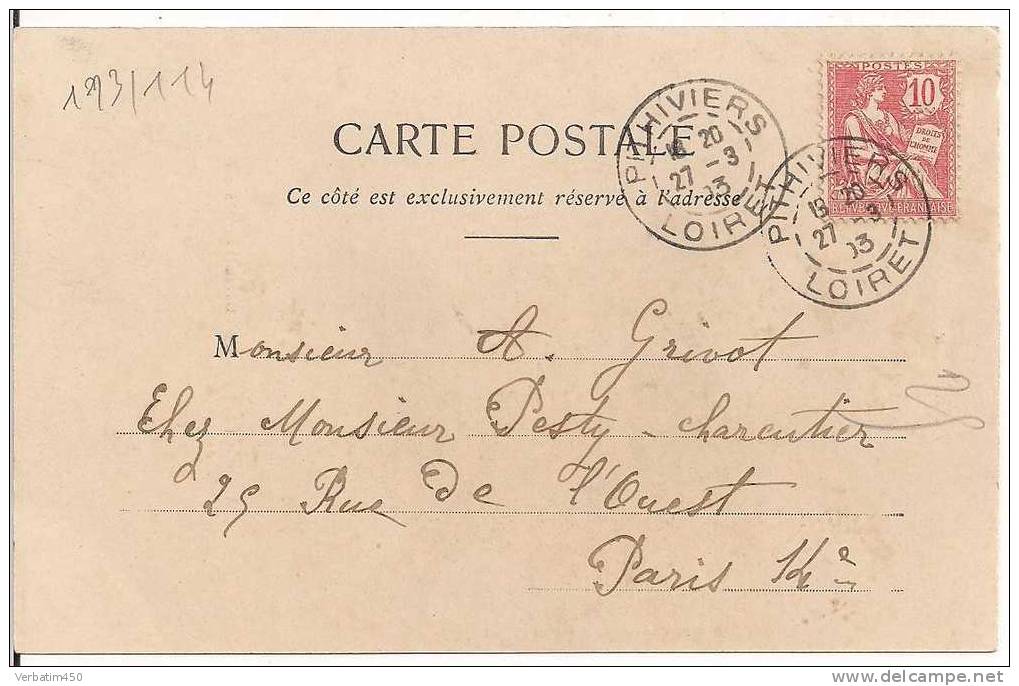 193/114
POSTES
10
DROITS
DE
L'HOMME
REPUBLIQUE FRANÇAISE
PITHIVIERS
18 20
27 -3
03
LOIRET
PITHIVIERS
18 20
27 -3
03
LOIRET
CARTE POSTALE
Ce côté est exclusivement réservé à l'adresse
Monsieur A. Grivot
Chez Monsieur Pesty - charcutier
25 Rue De l'Ouest
Paris 14e
Verbatim450
www.delcampe.net